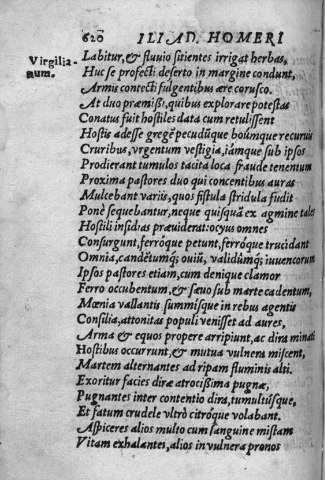 620 ILIAD. HOMERI
Virgilia-
num.
Labitur, & fluvio sitientes irrigat herbas,
Huc se profecti deserto in margine condunt,
Armis contecti fulgentibus ære corusco.
At duo præmissi, quibus explorare potestas
Conatus fuit hostiles data cum retulissent
Hostis adesse gregẽ pecudũque boũmque recuruis
Cruribus, vrgentum vestigia, iámque sub ipsos
Prodierant tumulos tacita loca fraude tenentum
Proxima pastores duo qui concentibus auras
Mulcebant variis, quos fistula stridula fudit
Ponè sequebantur, neque quisquã ex agmine tales
Hostili insidias præuiderat: ocyus omnes
Consurgunt, ferróque petunt, ferróque trucidant
Omnia, candẽtumq; ouiũ, validũmq; iuuencorum
Ipsos pastores etiam, cum denique clamor
Ferro occubentum, & sæuo sub marte cadentum,
Mœnia vallantis summisque in rebus agentis
Consilia, attonitas populi venisset ad aures,
Arma & equos propere arripiunt, ac dira minati
Hostibus occurrunt, & mutua vulnera miscent,
Martem alternantes ad ripam fluminis alti.
Exoritur facies diræ atrocissima pugnæ,
Pugnantes inter contentio dira, tumultúsque,
Et fatum crudele vltrò citróque volabant.
Aspiceres alios multo cum sanguine mistam
Vitam exhalantes, alios in vulnera pronos